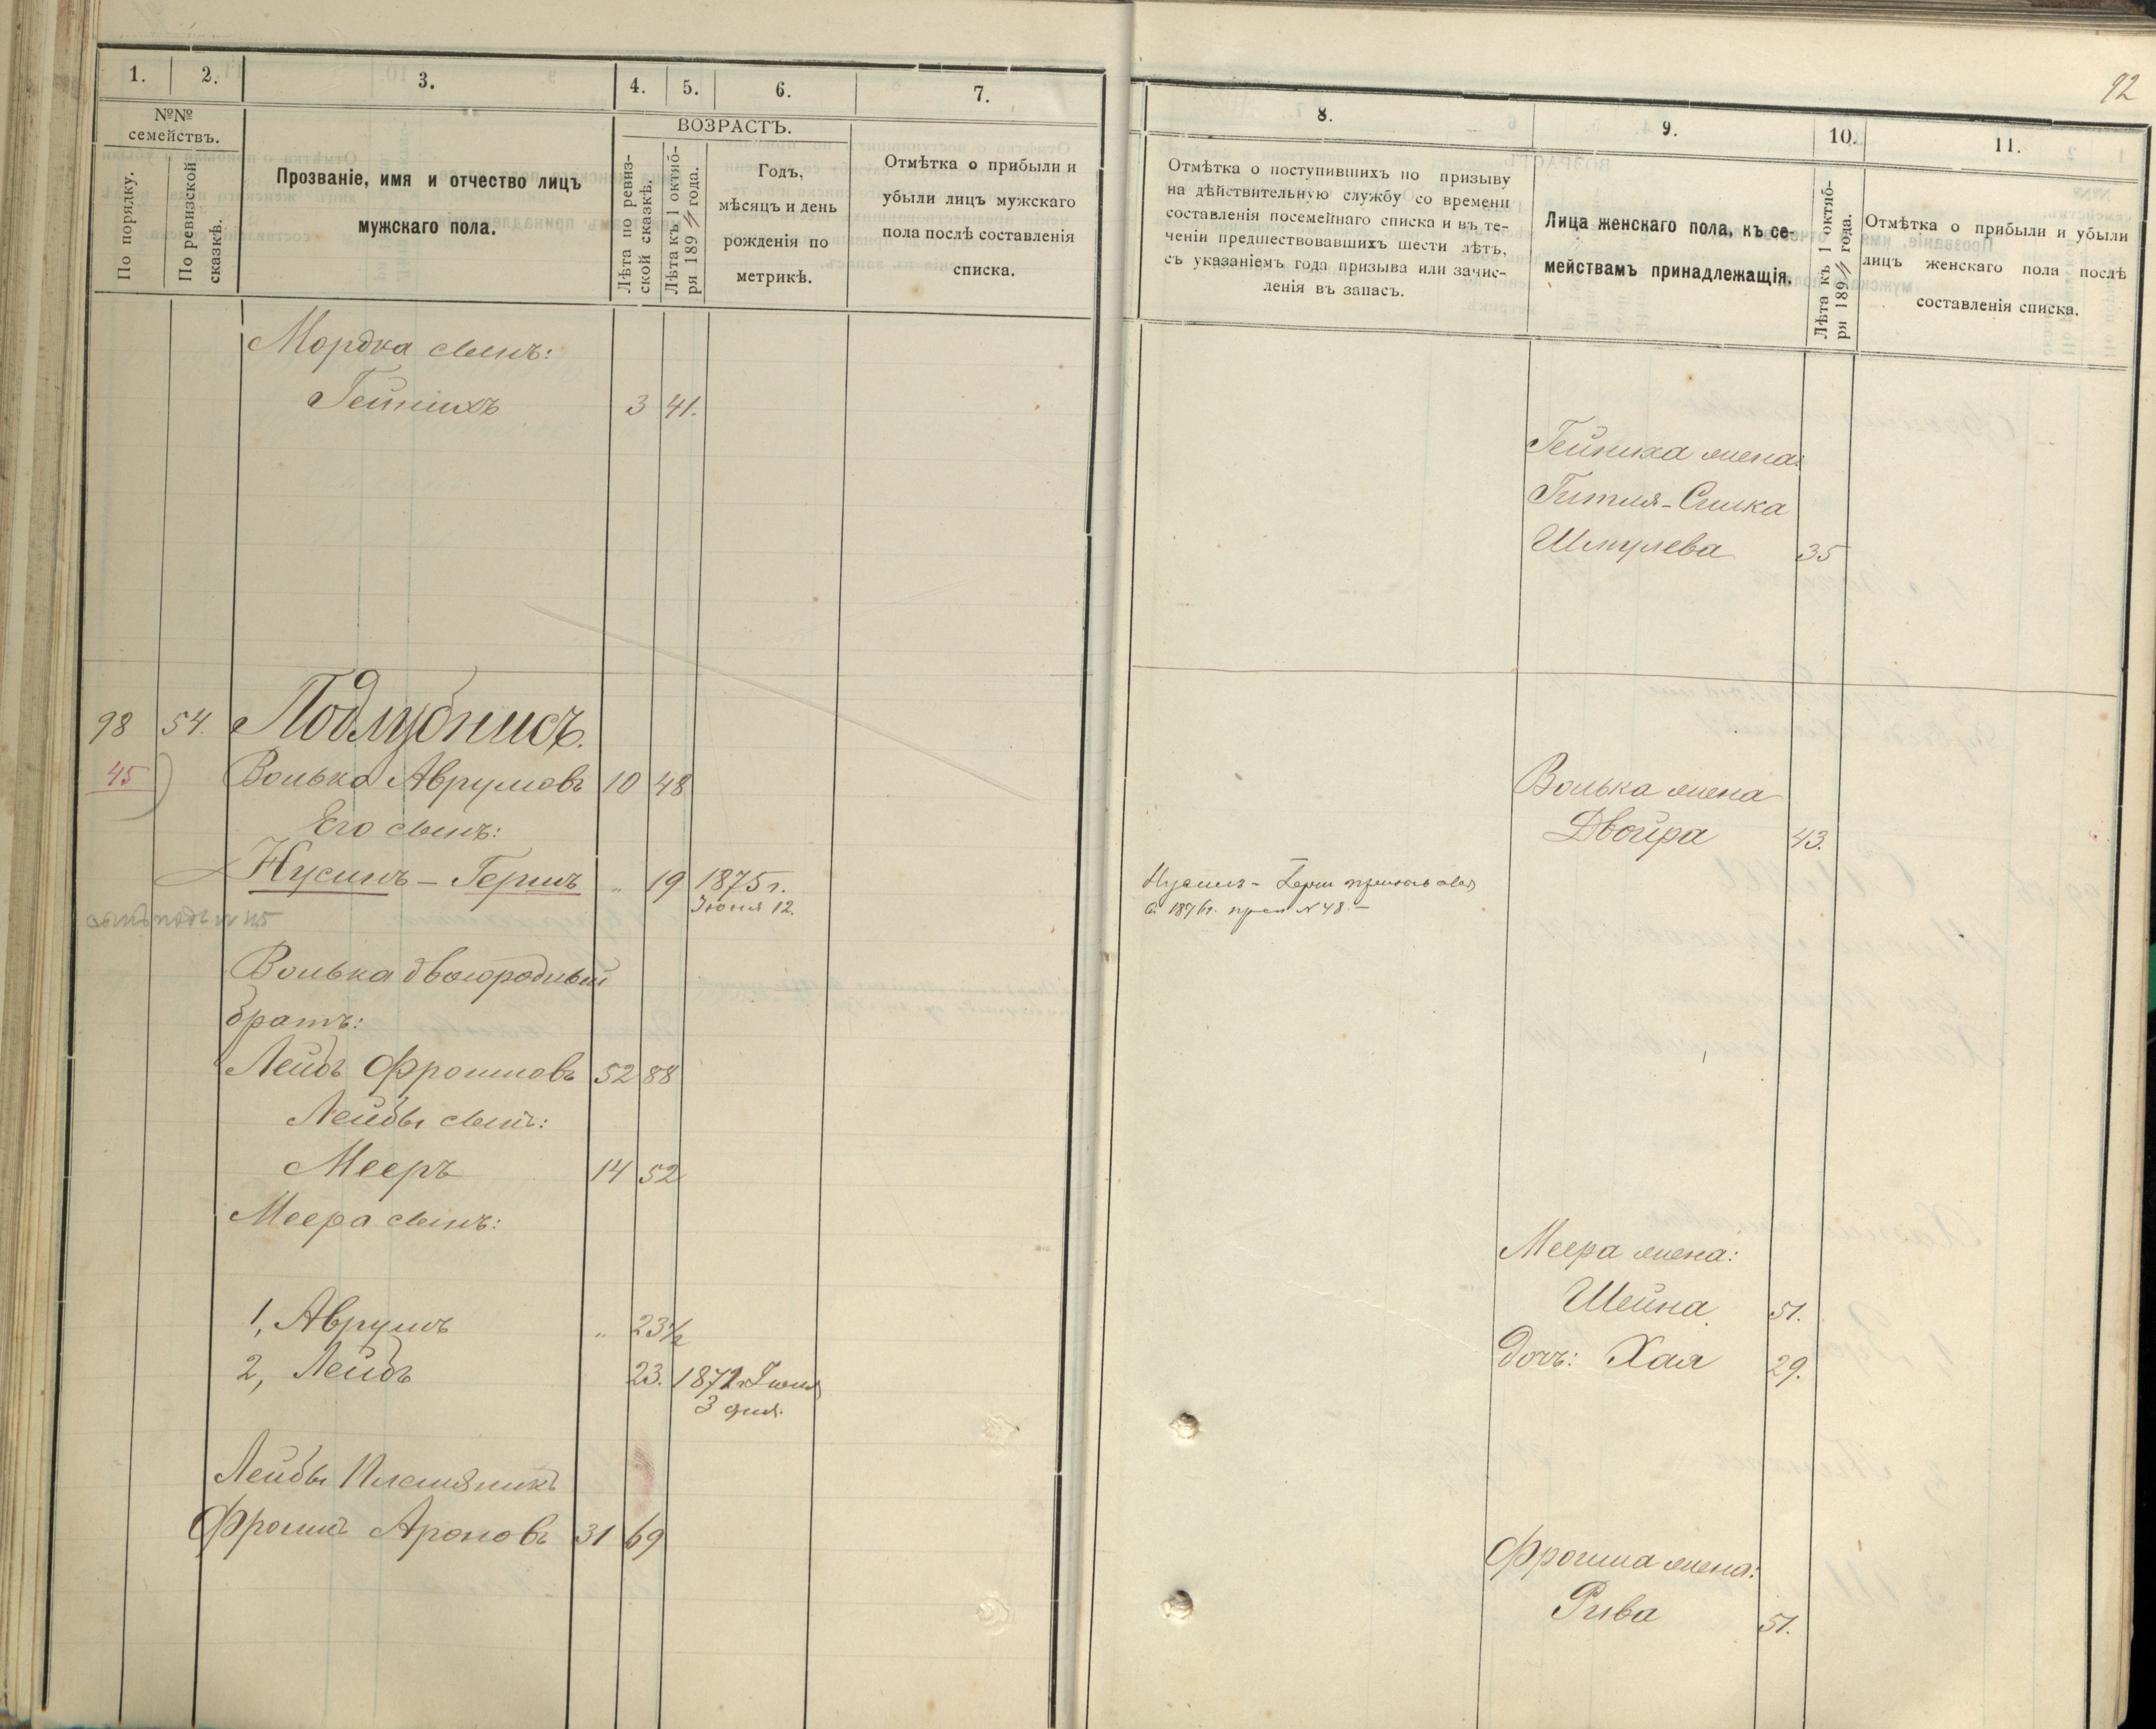 92
1. 2. 3. 4. 5. 6. 7.
№№ семействъ.
По порядку.
По ревизской сказкѣ.
Прозваніе, имя и отчество лицъ
мужскаго пола.
ВОЗРАСТЪ.
Лѣта по ревиз-
ской сказкѣ.
Лѣта къ 1 октяб-
ря 1894 года.
Годъ,
мѣсяцъ и день
рожденія по
метрикѣ.
Отмѣтка о прибыли и
убыли лицъ мужскаго
пола послѣ составленія
списка.
Мордка сынъ:
Гейнихъ 3 41.
98 54. Подлубнисъ.
45 Волька Аврумовъ 10 48
Его сынъ:
Нусинъ - Гершъ " 19 1875 г.
Іюня 12.
Волька двоюродный
братъ:
Лейбъ Фроимовъ 52 88
Лейбы сынъ:
Мееръ 14 52
Меера сынъ:
1, Аврумъ " 23 1/2
2, Лейбъ 23. 1872 г. Іюня
3 дня.
Лейбы Племяникъ
Фроимъ Ароновъ 31 69
8. 9. 10. 11.
Отмѣтка о поступившихъ по призыву
на дѣйствительную службу со времени
составленія посемейнаго списка и въ те-
ченіи предшествовавшихъ шести лѣтъ,
съ указаніемъ года призыва или зачис-
ленія въ запасъ.
Лица женскаго пола, къ се-
мействамъ принадлежащія.
Лѣта къ 1 октяб-
ря 1894 года.
Отмѣтка о прибыли и убыли
лицъ женскаго пола послѣ
составленія списка.
Гейниха жена:
Гитля-Силка
Шмулева 35
Волька жена
Двойра 43.
Нусинъ - Герш
1896 г. № 48. -
Меера жена:
Шейна 51.
дочь: Хая 29.
Фроима жена:
Рива 51.